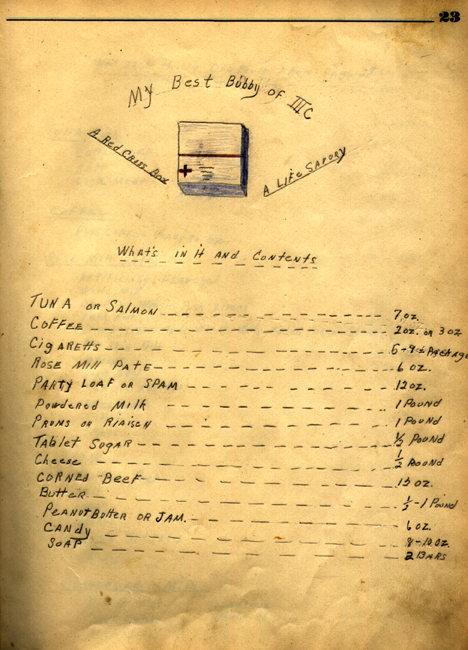 23
My Best Bubby of IIIC
A Red Cross Box
A Life Savory
What's in it And Contents
TUNA or Salmon 7 oz.
Coffee 2 oz. or 3 oz
Cigaretts 5-9 Package
Rose Mill Pate 6 oz.
Party Loaf or Spam 12 oz.
Powdered Milk 1 Pound
Pruns or Riaisin 1 Pound
Tablet Sugar 1/2 Pound
Cheese 1/2 Pound
Corned Beef oz.
Butter - 1 Pound
Peanut Butter or Jam. 6 oz.
Candy 8-10 oz.
Soap 2 Bars